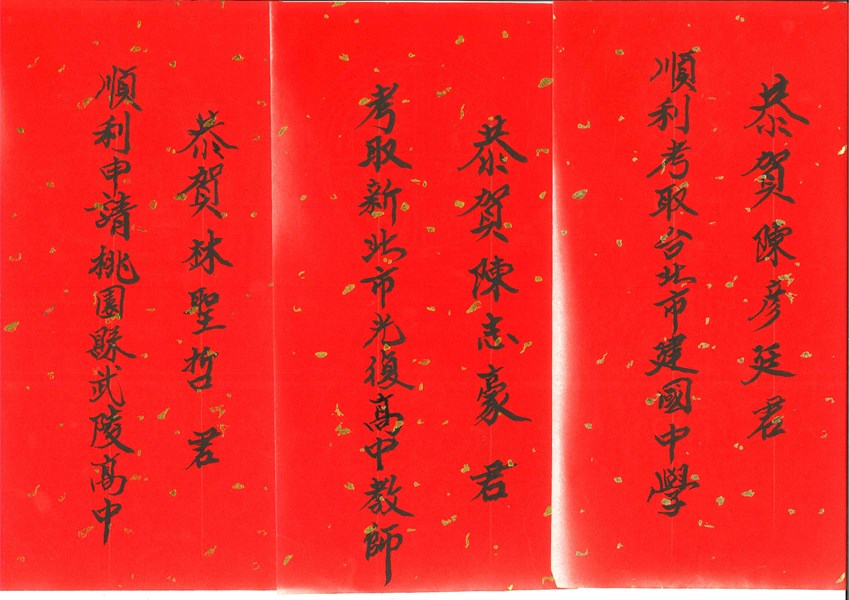 恭賀陳彥廷君
順利考取台北市建國中學
恭賀陳志豪君
考取新北市光復高中教師
恭賀林聖哲君
順利申請桃園縣武陵高中